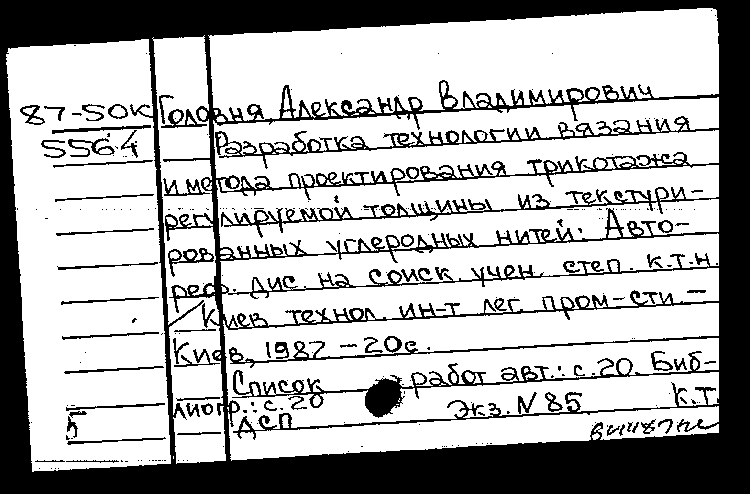 87-50к Головня, Александр Владимирович
5564 Разработка технологии вязания
и метода проектирования трикотажа
регулируемой толщины из текстури-
рованных углеродных нитей: Авто-
реф. дис. на соиск. учен. степ. к.т.н.
/ Киев технол. ин-т лег. пром-сти. -
Киев, 1987 - 20с.
Список работ авт.: с.20. Биб-
лиогр.: с.20 Экз. N 85. К.Т.
5 ДСП